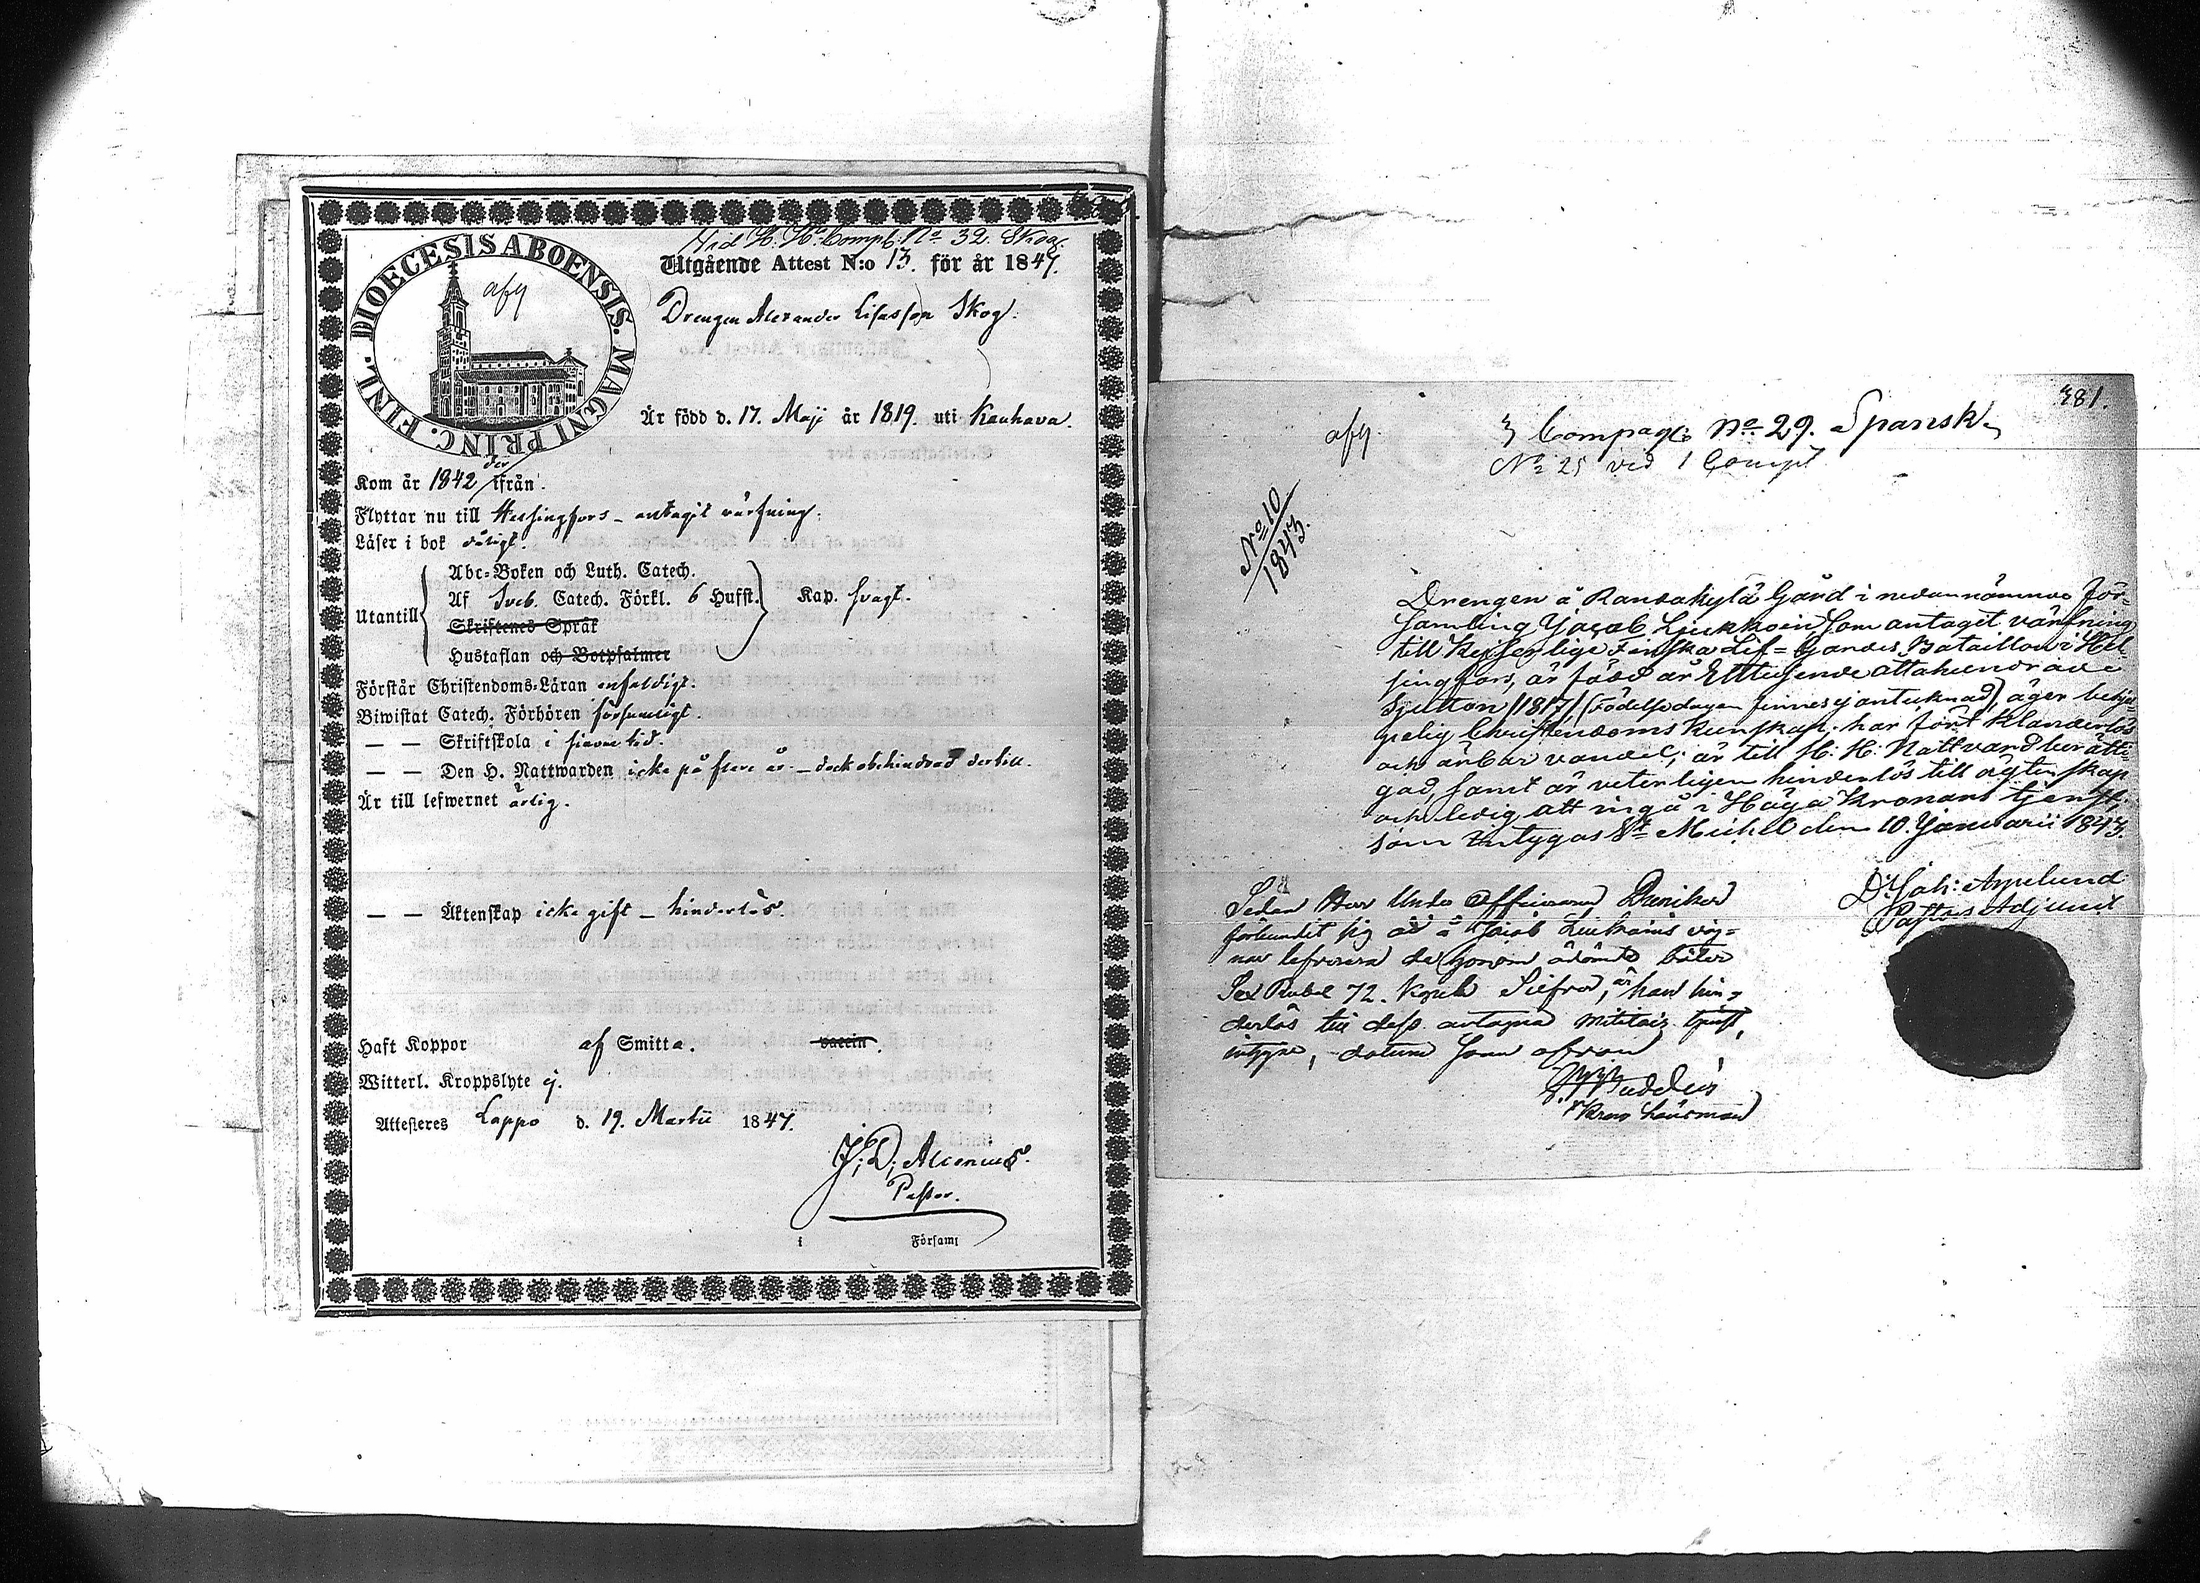 Vid H. H:s Comp: No 32. Skog
Utgående Attest N:o 13. för år 1847.
DIOECESIS ABOENSIS. MAGNI PRINC. FINL.
afg
Drengen Alexander Lisasson Skog.
Är född d. 17. Maji år 1819. uti Kauhava.
Kom år 1842 ifrån
Flyttar nu till Helsingfors – antagit värfning.
Läser i bok dåligt.
Abc-Boken och Luth. Catech.
Utantill Af Sveb. Catech. Förkl. 6 Hufst. Kap. svagt.
Skriftenes Språk
Hustaflan och Botpsalmer
Förstår Christendoms-Läran enfaldigt.
Biwistat Catech. Förhören försumligt.
— — Skriftskola i sinom tid.
— — Den H. Nattwarden icke på flere år – dock obehindrad dertill.
Är till lefwernet ärlig.
— — Äktenskap icke gift – hinderlös.
Haft Koppor af Smitta. vaccin.
Witterl. Kroppslyte ej.
Attesteres Lappo d. 19. Martii 1847.
J: D: Alcenius.
Pastor.
i Församl
381.
afg.
3 Compag: No 29. Spansk
No 25 vid 1 Comp
No 10
1843.
Drengen å Randakylä Gård i nedannämnde För-
samling Jacob Liukkoin som antagit värfning
till Kejserlige Finska Lif-Gardes Bataillon i Hel
singfors, är född år Ett tusende attahundrade
Sjutton /1817/ (födelsedagen finnes ej antecknad), äger behje-
pelig Christendoms Kunskap, har fört klanderlös
och ärbar vandel; är till H: H: Nattvard berätti-
gad, samt är veterligen hinderlös till ägtenskap
och ledig att ingå i Höga Kronans tjenst,
som intygas St Michel den 10 Januarii 1843.
Joh: Argelund
Pastors Adjunct
Sedan Herr Under Officeraren
förbundit sig att å Jacob Liukkoins väg-
nar leverera de honom ådömde böter
Sex Rubel 72. Kopek Silfver, är han hin-
derlös till dess antagna Militair tjenst,
intygar, datum som ofvan
Buddén
Krono Länsman